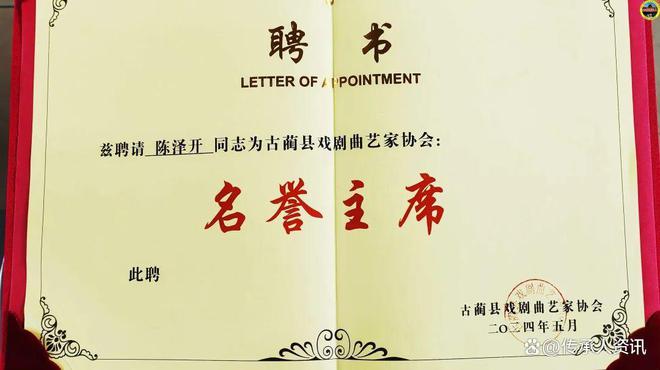 聘书
LETTER OF APPOINTMENT
兹聘请 陈泽开 同志为古蔺县戏剧曲艺家协会:
名誉主席
此聘
古蔺县戏剧曲艺家协会
二〇二四年五月
@传承人资讯